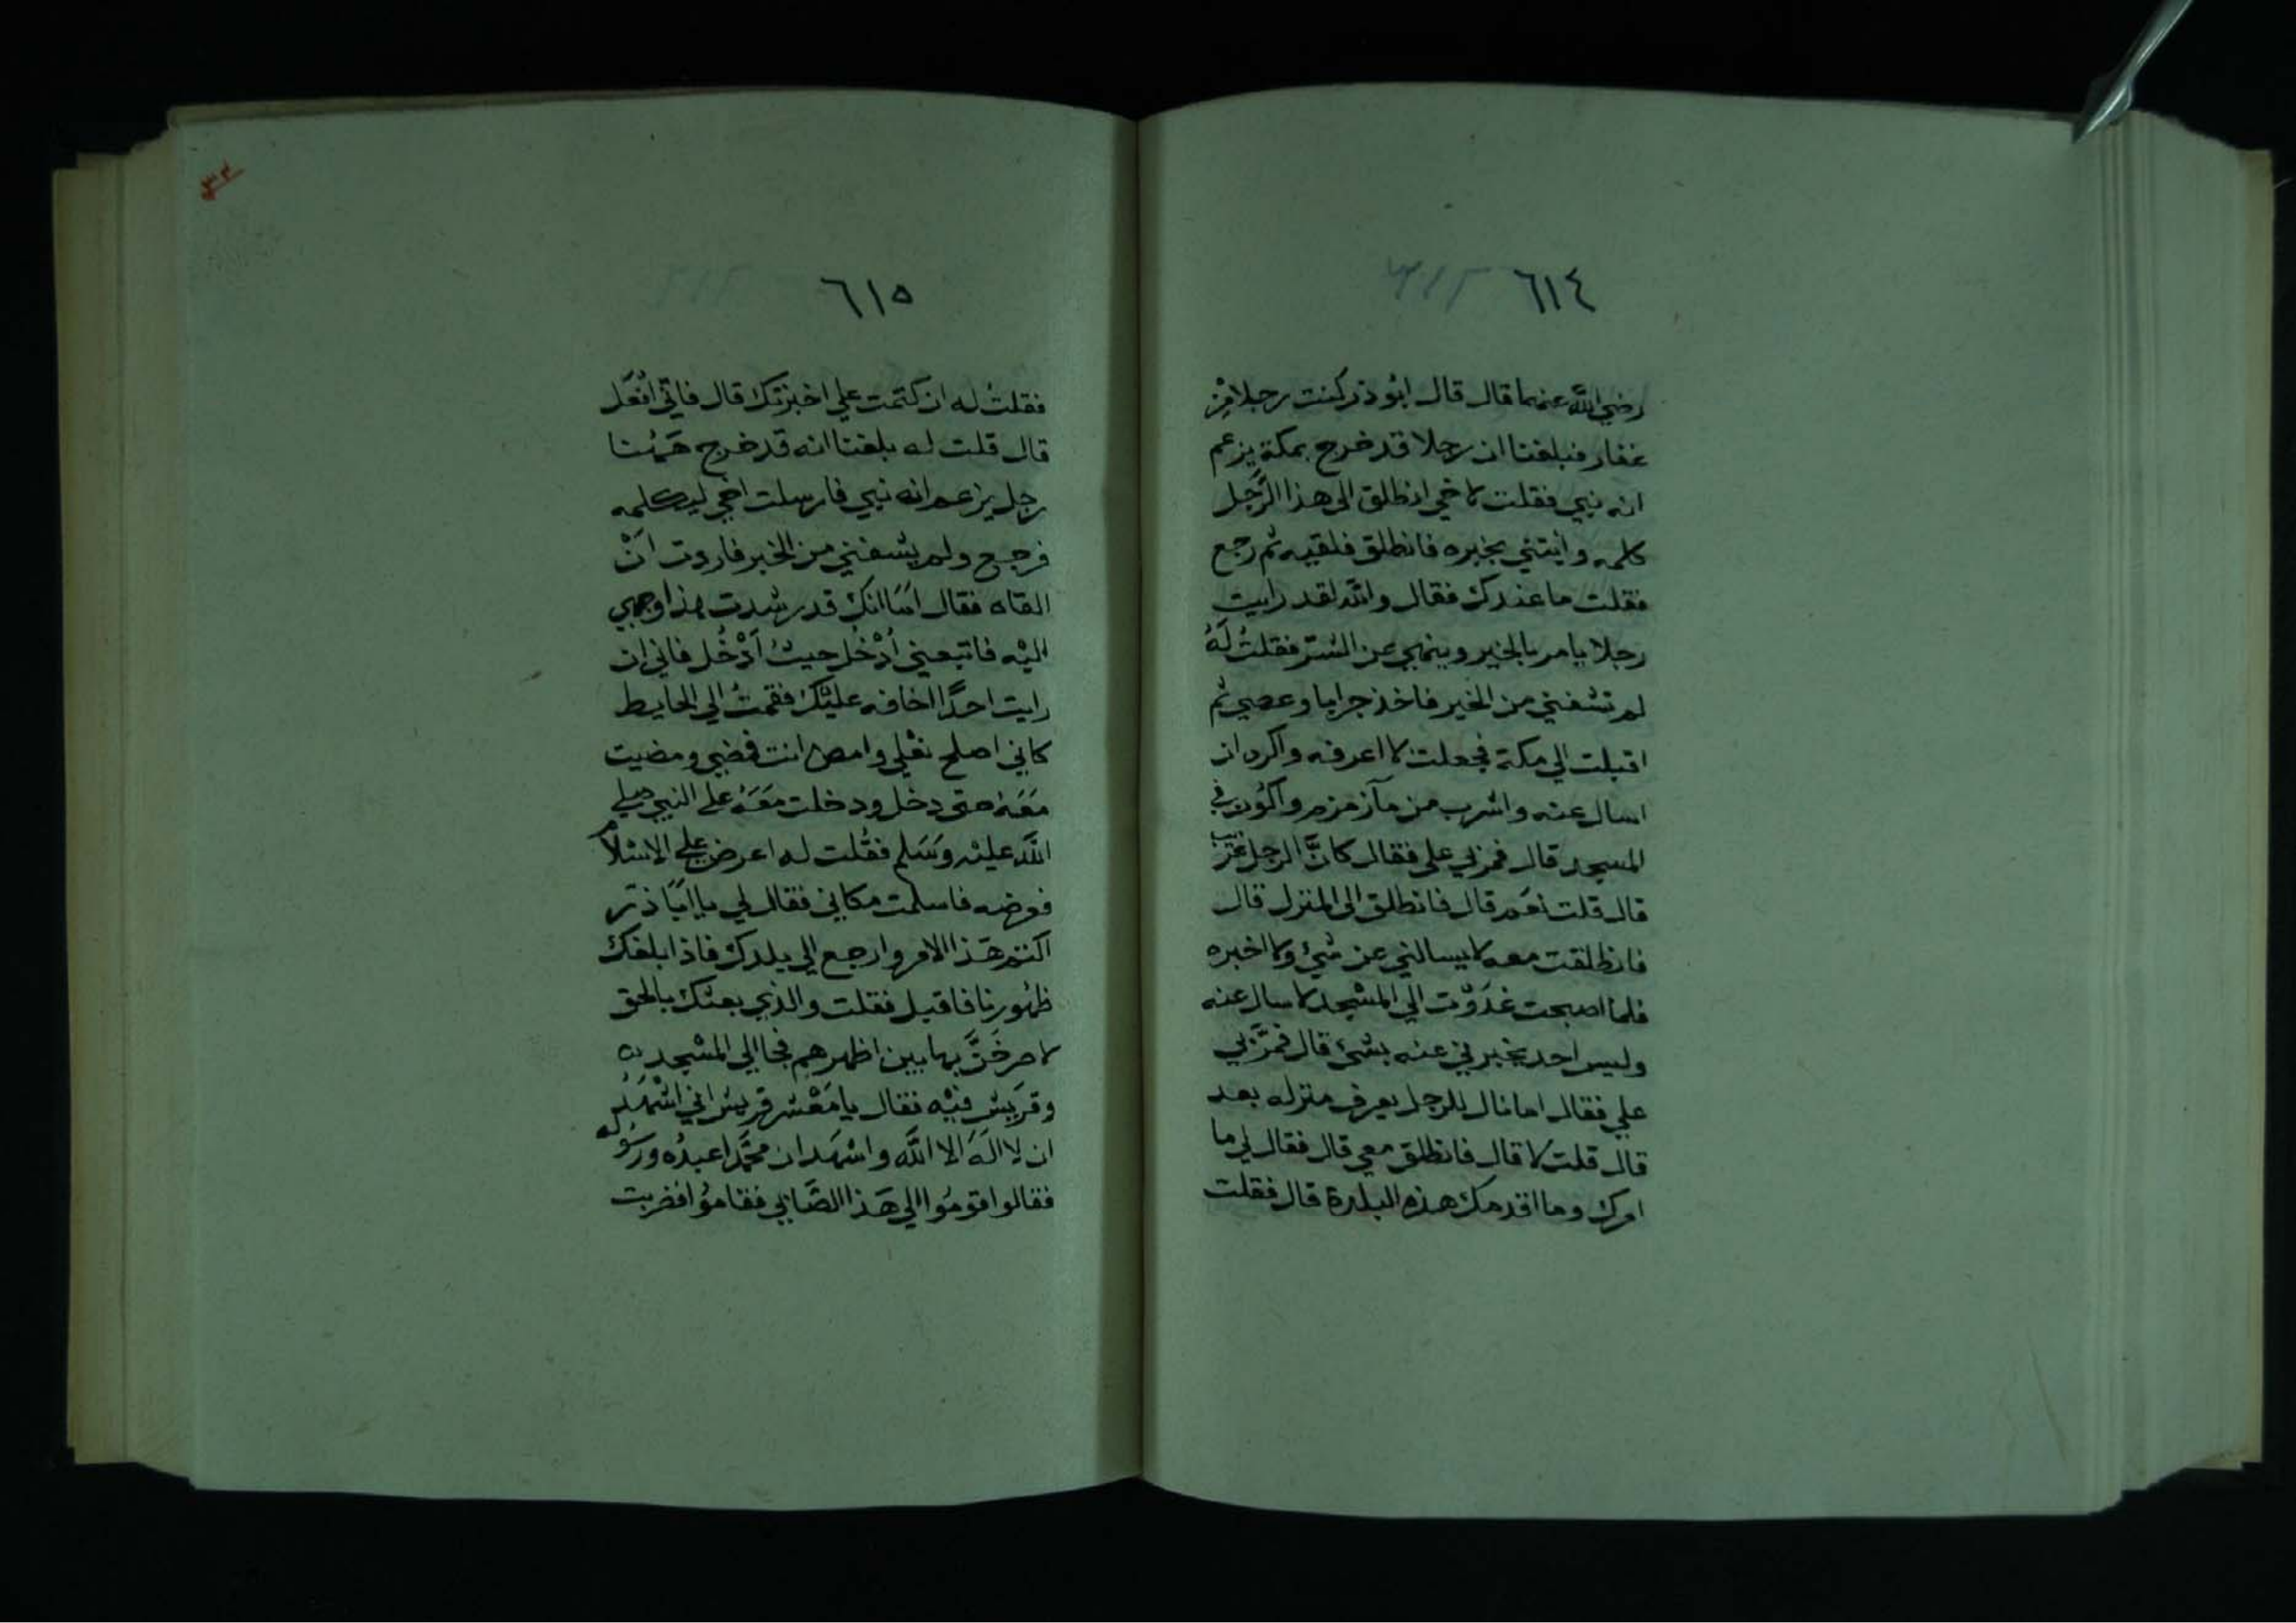 ٦١٤
رضي الله عنهما قال قال ابُو ذر كنت رجلا مِنْ
غفار فبلغنا ان رجلا قد خرج بمكة يزعم
انه نبي فقلت لاخي انطلق الى هذا الرَّجل
كلمه وايتني بخبره فانطلق فلقيه ثم رجع
فقلت ما عندك فقال والله لقد رايت
رجلا يامر بالخير وينهي عن الشر فقلتُ لَهُ
لم تشفني من الخير فاخذ جرابا وعصي ثم
اقبلت الي مكة فجعلت لا اعرفه واكره ان
اسال عنه واشرب من مآ زمزم واكُون في
المسجد قال فمر بي علي فقال كانَّ الرجل غريب
قال قلت نعَم قال فانطلق الى المنزل قال
فانطلقت معه لا يسالني عن شئ ولا اخبره
فلما اصبحت غدَوْت الي المسْجد لاسال عنه
وليس احد يخبرني عنه بشئ قال فمرَّ بي
علي فقال اما نال للرجل يعرف منزله بعد
قال قلت لا قال فانطلق معي قال فقال لي ما
امرك وما اقدمك هذه البلدة قال فقلت
٦١٥
فقلتُ له ان كتمت علي اخبرتك قال فاني افعَل
قال قلت له بلغنا انه قد خرج هَهُنا
رجل يزعم انه نبي فارسلت اخي ليكلمه
فرجع ولم يشفني من الخبر فاردت انْ
القاه فقال امَا انك قد رشدت هذا وجهي
اليْه فاتبعني أدْخُل حيثُ اَدْخُل فاني ان
رايت احدًا اخافه عليْك فقمتُ الي الحايط
كاني اصلح نعْلي وامض انت فمضي ومضيت
مَعَهُ حتى دخل ودخلت مَعَهُ على النبي صلي
اللَّه عليْه وسَلم فقُلت له اعرض علي الاسْلام
فعرضه فاسلمت مكاني فقال لي يا ابَا ذر
اكتم هَذا الامر وارجع الي بلدك فاذا بلغك
ظهُورنا فاقبل فقلت والذي بعثك بالحق
لاصرخَنَّ بها بين اظهرهم فجا الي المسْجد
وقريش فيْه فقال يا مَعْشر قريش اني اشْهَدُ
ان لا الَهَ الا اللَّه واشهَد ان محمَّدا عبدُه ورسُوله
فقالوا قومُوا الي هَذا الصَّابي فقامُوا فضربت